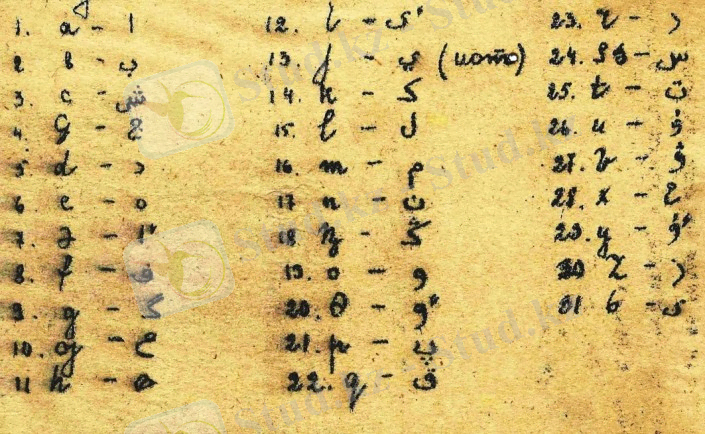 1. a - ا
2 в - ب
3. c - ش
5 d - د
6 e - ه
8. f - ف
9. g - گ
11 h - ھ
12. i - ئ
13. j - ي (иото)
14. k - ک
15. l - ل
16. m - م
17 n - ن
19. o - و
20. ө - ٶ
21. p - پ
22. q - ق
23. r - ر
24. s - س
25. t - ت
26. u - ۇ
27. v - ۋ
28. x - خ
29. y - ٷ
30 z - ز
31 ь - ى